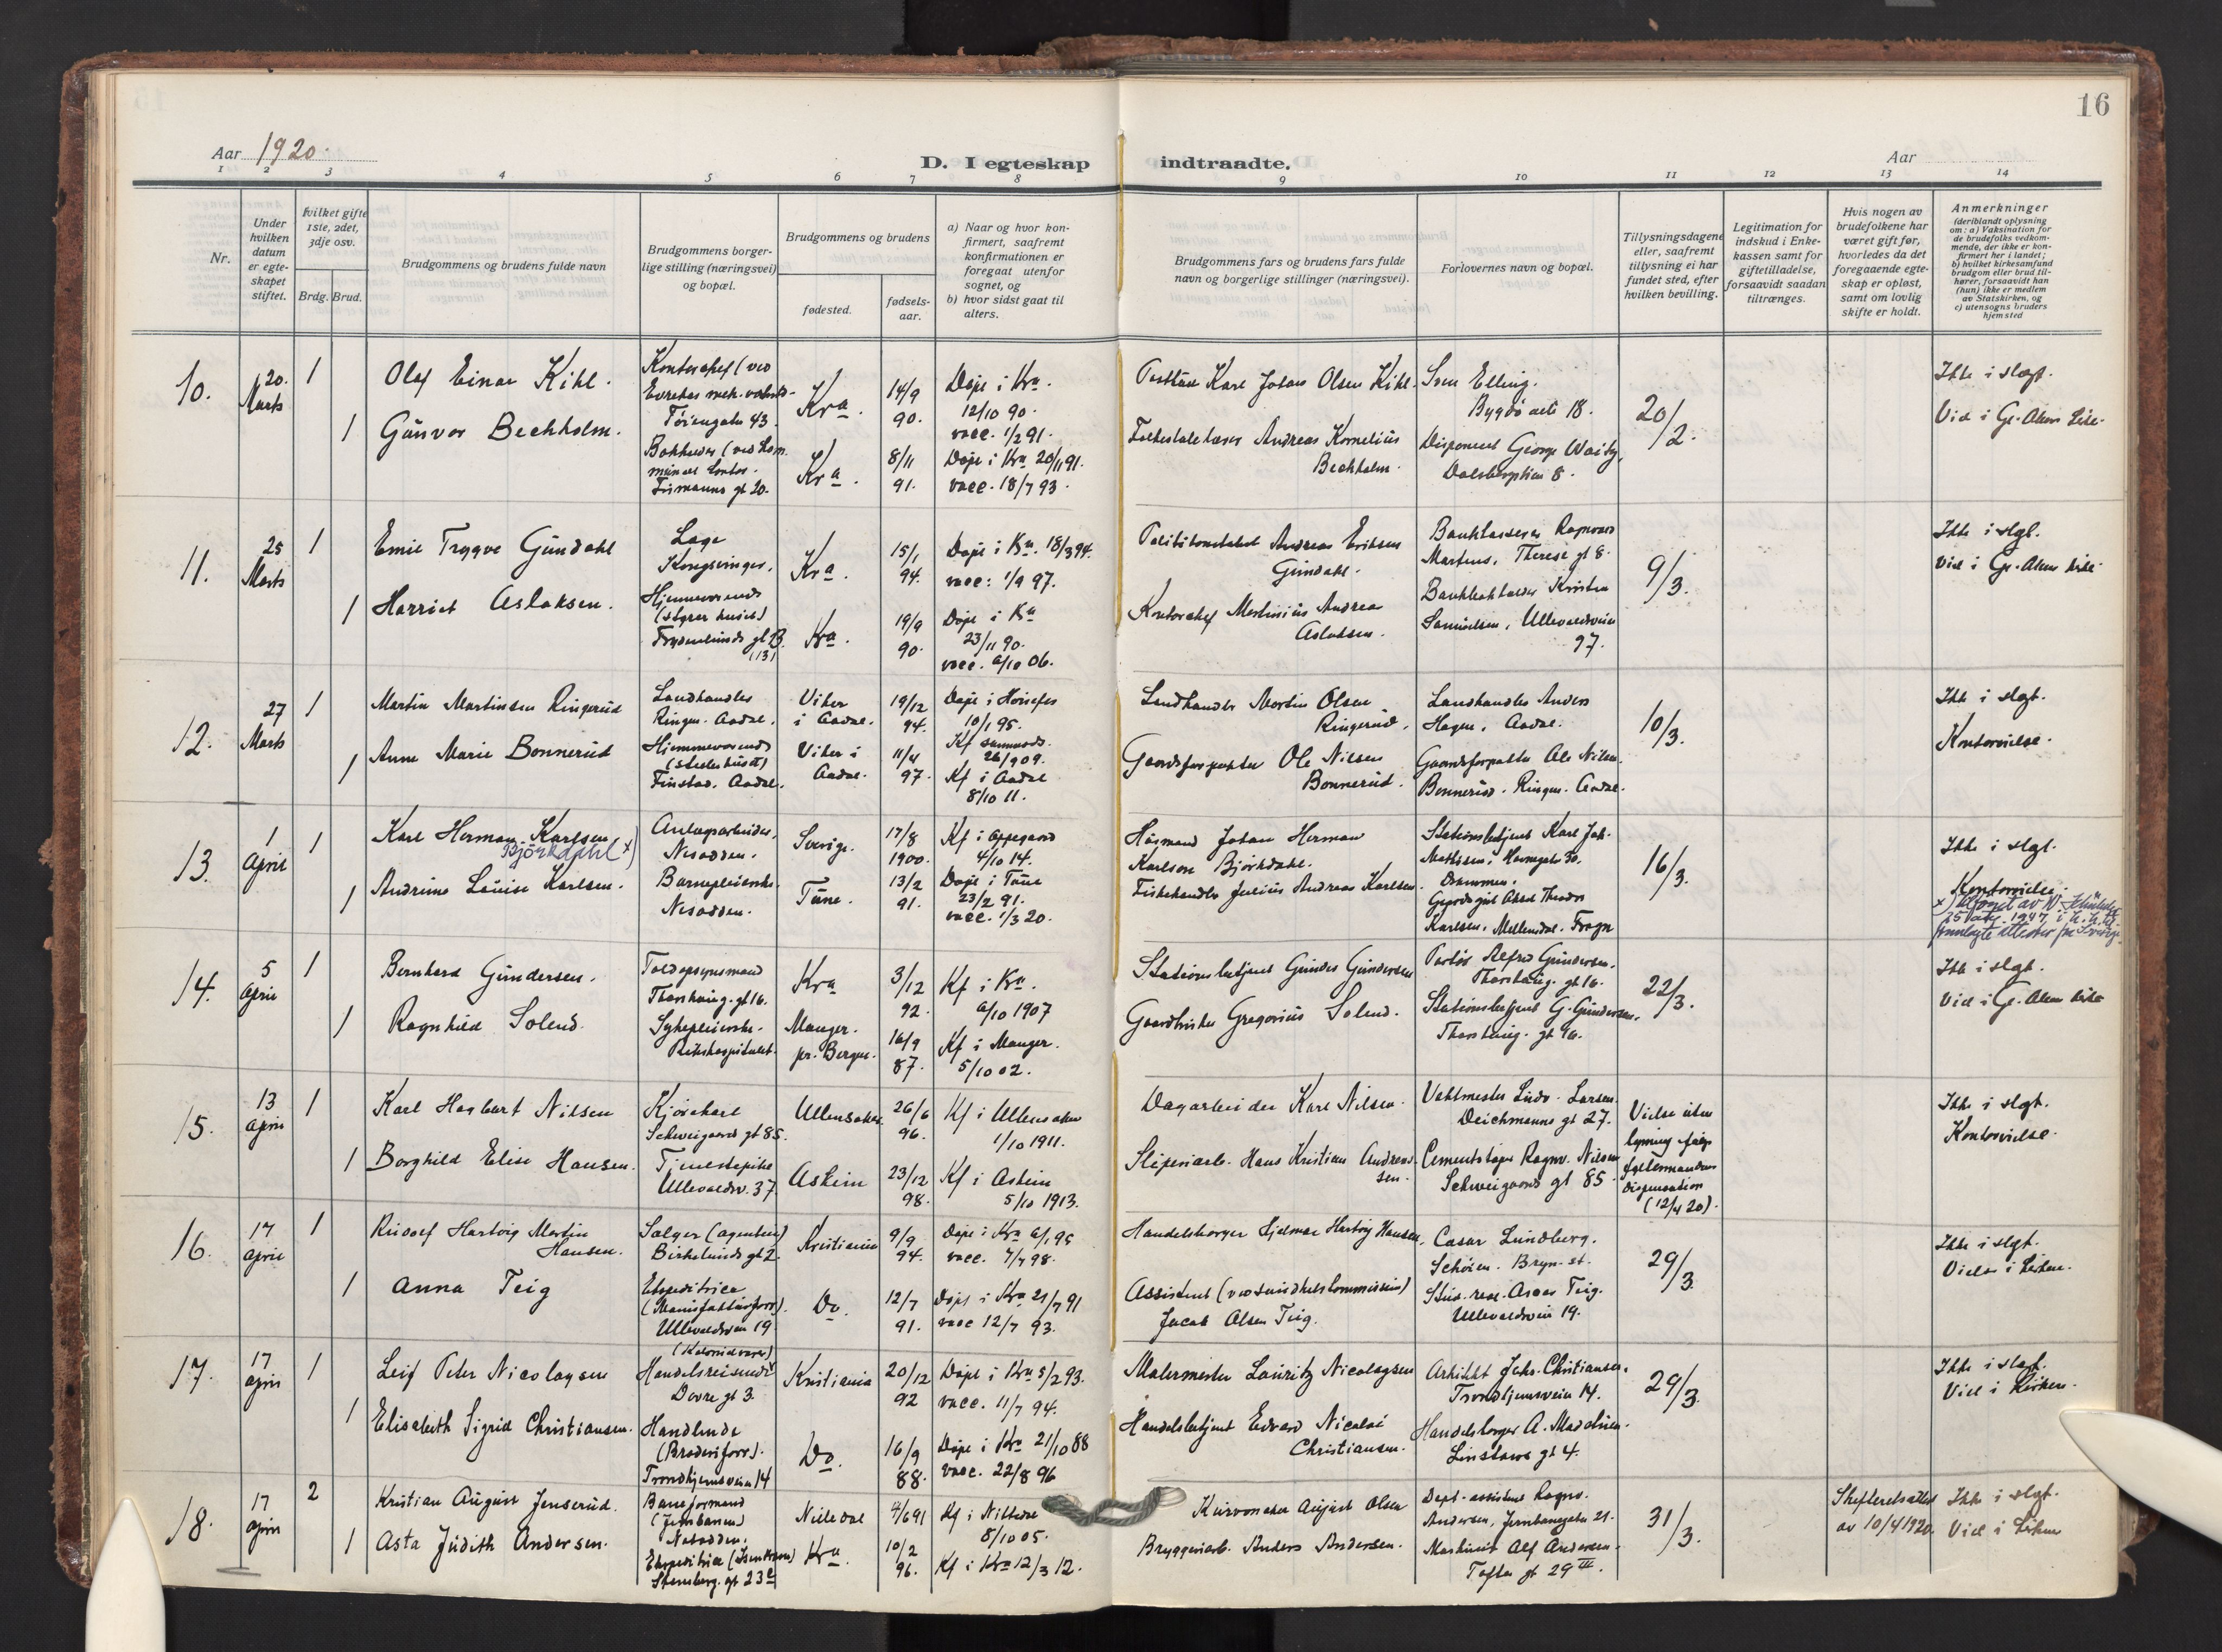 16
Aar 1920.
D. I egteskap indtraadte.
Aar
1 2 3 4 5 6 7 8 9 10 11 12 13 14
Nr.
Under
hvilken
datum
er egte-
skapet
stiftet.
hvilket gifte
1ste, 2det,
3dje osv.
Brdg. Brud.
Brudgommens og brudens fulde navn
Brudgommens borger-
lige stilling (næringsvei)
og bopæl.
Brudgommens og brudens
fødested.
fødsels-
aar.
a) Naar og hvor kon-
firmert, saafremt
konfirmationen er
foregaat utenfor
sognet, og
b) hvor sidst gaat til
alters.
Brudgommens fars og brudens fars fulde
navn og borgerlige stillinger (næringsvei).
Forlovernes navn og bopæl.
Tillysningsdagene
eller, saafremt
tillysning ei har
fundet sted, efter
hvilken bevilling.
Legitimation for
indskud i Enke-
kassen samt for
giftetilladelse,
forsaavidt saadan
tiltrænges.
Hvis nogen av
brudefolkene har
været gift før,
hvorledes da det
foregaaende egte-
skap er opløst,
samt om lovlig
skifte er holdt.
Anmerkninger
(deriblandt oplysning
om: a) Vaksination for
de brudefolks vedkom-
mende, der ikke er kon-
firmert her i landet;
b) hvilket kirkesamfund
brudgom eller brud til-
hører, forsaavidt han
(hun) ikke er medlem
av Statskirken, og
c) utensogns bruders
hjemsted
10.
20.
Marts
1
Olaf Einar Kihl.
Kontorchef (ved
Tøiengaten 43
Kra.
14/9
90.
Døpt i Kra.
12/10 90.
vacc. 1/2 91.
Karl Johan Olsen Kihl.
Sven Elling.
Bygdø allé 18.
20/2.
Ikke i slegt.
Viet i Gl. Akers kirke.
1
Gunvor Bechholm.
Bokholder (ved kom
munens kontor.
gt 20.
Kra.
8/11
91.
Døpt i Kra 20/11 91.
vacc. 18/7 93.
Andreas Kornelius
Bechholm.
Disponent George
8.
11.
25
Marts
1
Emil Trygve Gundahl
Kongsvinger.
Kra.
15/1
94.
Døpt i Kra. 18/3 94.
vacc: 1/9 97.
Andreas Eriksen
Gundahl.
Bankkasserer Ragnvald
Martens, Therese gt 8.
9/3.
Ikke i slegt.
Viet i Gl. Akers kirke.
1
Harriet Aslaksen.
Hjemmeværende
(styrer huset)
Frydenlunds gt 13.
(13)
Kra.
19/9
90.
Døpt i Kra
23/11 90.
vacc. 6/10 06.
Kontorchef Andrea
Aslaksen.
Bankbokholder Kristen
Samuelsen, Ullevaldsveien
97.
12.
27
Marts
1
Martin Martinsen Ringerud
Landhandler
Ringen. Aadal.
Viker
i Aadal.
19/12
94.
Døpt i Hønefos
10/1 95.
Kf sammesteds.
26/9 09.
Landhandler Martin Olsen
Ringerud.
Landhandler Anders
Hagen, Aadal.
10/3.
Ikke i slegt.
Kontorvielse.
1
Anne Marie Bonnerud
Hjemmeværende
(steller huset)
Finstad. Aadal.
Viker i
Aadal.
11/4
97.
Kf i Aadal
8/10 11.
Gaardsforpakter Ole Nilsen
Bonnerud.
Gaardsforpakter Ole Nilsen
Bonnerud. Ringen. Aadal.
13.
1
April
1
Karl Herman Karlsen
Björkdahl x)
Anlægsarbeider.
Nesodden.
Sverige.
17/8
1900.
Kf i Oppegaard
4/10 14.
Husmand Johan Herman
Karlson Björkdahl.
Stationsbetjent Karl Joh.
Mathisen, Havnegaten 30.
Drammen.
16/3.
Ikke i slegt.
Kontorvielse.
1
Andrine Louise Karlsen.
Barnepleierske.
Nesodden.
Tune.
13/2
91.
Døpt i Tune
23/2 91.
vacc. 1/3 20.
Fiskehandler Julius Andreas Karlsen.
Gaardsgut Aksel Theodor
Karlsen. Mellemdal. Frogn
14.
5
April
1
Bernhard Gundersen.
Toldopsynsmand
gt 16.
Kra
3/12
92.
Kf i Kra.
6/10 1907
Stationsbetjent Gunder Gundersen
Alfred Gundersen.
gt 16.
22/3.
Ikke i slegt.
Viet i Gl. Akers kirke
1
Ragnhild Solend.
Sykepleierske.
Rikshospitalet.
Manger.
pr. Bergen.
16/9
87.
Kf i Manger.
5/10 02.
Gaardbruker Gregorius Solend.
Stationsbetjent G. Gundersen.
gt 16.
15.
13
April
1
Karl Herbert Nilsen
Kjørekarl
Schweigaards gt 85.
Ullensaker.
26/6
96.
Kf i Ullensaker
1/10 1911.
Dagarbeider Karl Nilsen.
Vaktmester Ludv. Larsen.
Deichmanns gt 27.
Vielse uten
lysning ifølge
dispensation
(12/4 20).
Ikke i slegt.
Kontorvielse.
1
Borghild Elise Hansen.
Tjenestepike
Ullevaldsv. 37
Askim
23/12
98.
Kf i Askim
5/10 1913.
Sliperiarb. Hans Kristian Andrea-
sen.
Cementstøper Ragnv. Nilsen
Schweigaards gt 85.
16.
17
April
1
Rudolf Hartvig Martin
Hansen.
Sælger (agentur)
Birkelunds gt 2
Kristiania
9/9
94.
Døpt i Kra 6/1 95
vacc. 7/7 98.
Handelsborger Hjelmar Hartvig Hansen.
Cæsar Lundberg.
Schøien. Bryn st.
29/3
Ikke i slegt.
Vielse i kirken.
1
Anna Teig
Ekspeditrice
(Manufakturforr).
Ullevaldsveien 19.
Do.
12/7
91.
Døpt i Kra 21/7 91
vacc 12/7 93.
Assistent (ved sundhetskommissionen)
Jacob Olsen Teig.
Stud. real. Teig.
Ullevaldsveien 19.
17.
17
April
1
Leif Peter Nicolaysen
(Kolonialvarer)
Handelsreisende
Dovre gt 3.
Kristiania
20/12
92
Døpt i Kra 5/2 93.
vacc. 11/7 94.
Malermester Lauritz Nicolaysen
Arkitekt Johs. Christiansen.
Trondhjemsveien 14.
29/3.
Ikke i slegt.
Viet i Kirken.
1
Elisabeth Sigrid Christiansen.
Handlende
(Broderiforr).
Trondhjemsveien 14
Do.
16/9
88.
Døpt i Kra 21/10 88
vacc. 22/8 96
Handelsbetjent Edvard Nicolai
Christiansen.
Handelsborger A. Madsen.
Linstows gt 4.
18.
17
April
2
Kristian August Jenserud.
Baneformand
(Jernbanen)
Nesodden.
Kf i Nittedal
8/10 05.
August Olsen
Dept.-assistent Ragnv.
Andersen, Jernbanegaten 21.
31/3.
Skifteretsattest
av 10/4 1920.
Ikke i slegt.
Viet i kirken
1
Asta Judith Andersen.
Ekspeditrice
Stensberg. gt 23
Kra.
10/2
96.
Kf i Kra 12/3 12.
Bryggeriarb. Anders Andersen.
Maskinist Alf Andersen.
Toftes gt 29 III.